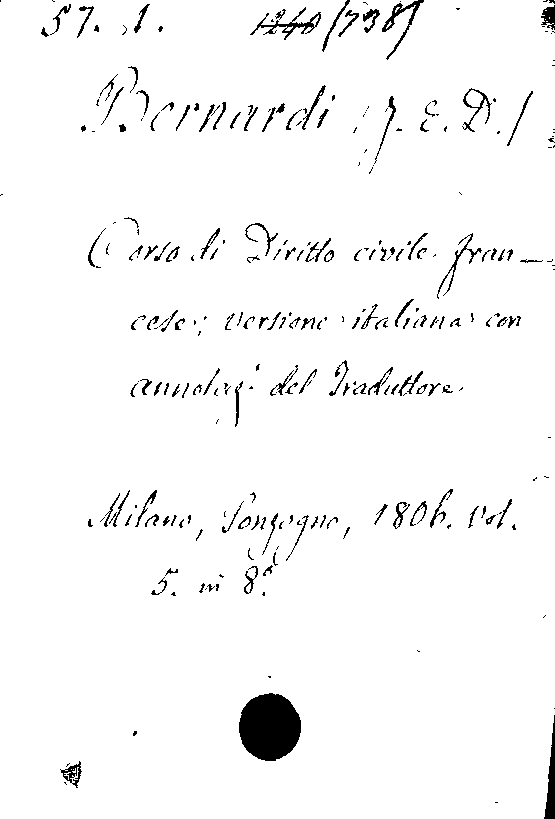 57. 1. 1240 (738)
Bernardi (J. E. D.)
Corso di Diritto civile fran-
cese; versione italiana con
annotaz.i del Traduttore.
Milano, Sonzogno, 1806. vol.
5. in 8.o